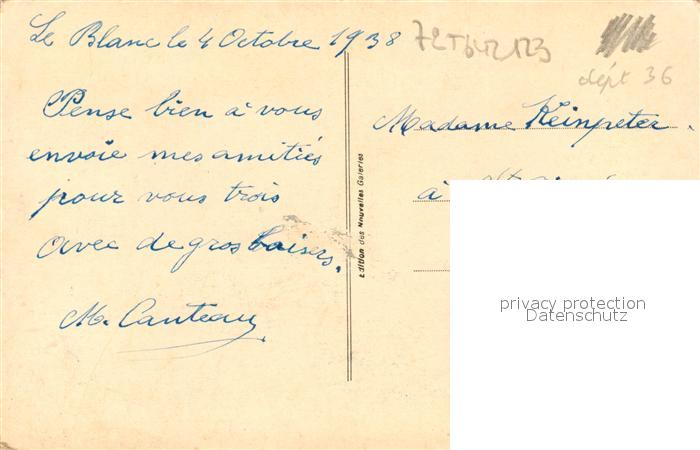 Le Blanc le 4 Octobre 1938
dépt 36
Pense bien à vous
envoie mes amitiés
pour vous trois
avec de gros baisers.
M. Canteau
Edition des Nouvelles Galeries
Madame Keinpeter.
à
privacy protection
Datenschutz